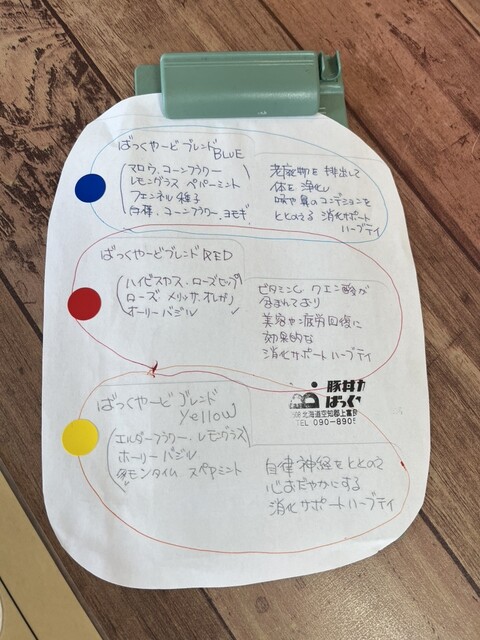 ばっくやーど ブレンド BLUE
マロウ、コーンフラワー
レモングラス ペパーミント
フェンネル 種子
白樺、コーンフラワー、ヨモギ
老廃物を 排出して
体を 浄化し
喉や鼻のコンディションを
ととのえる 消化サポート
ハーブティ
ばっくやーどブレンド RED
ハイビスカス・ローズヒップ
ローズ メリッサ オレガノ
ホーリーバジル
ビタミンC クエン酸が
含まれており
美容や疲労回復に
効果的な
消化サポート ハーブティ
豚丼
ばっくや
北海道空知郡上富良
TEL 090-8905
ばっくやーど ブレンド
Yellow
エルダーフラワー、レモングラス
ホーリー バジル
レモンタイム スペアミント
自律神経をととのえ
心おだやかにする
消化サポート ハーブティ